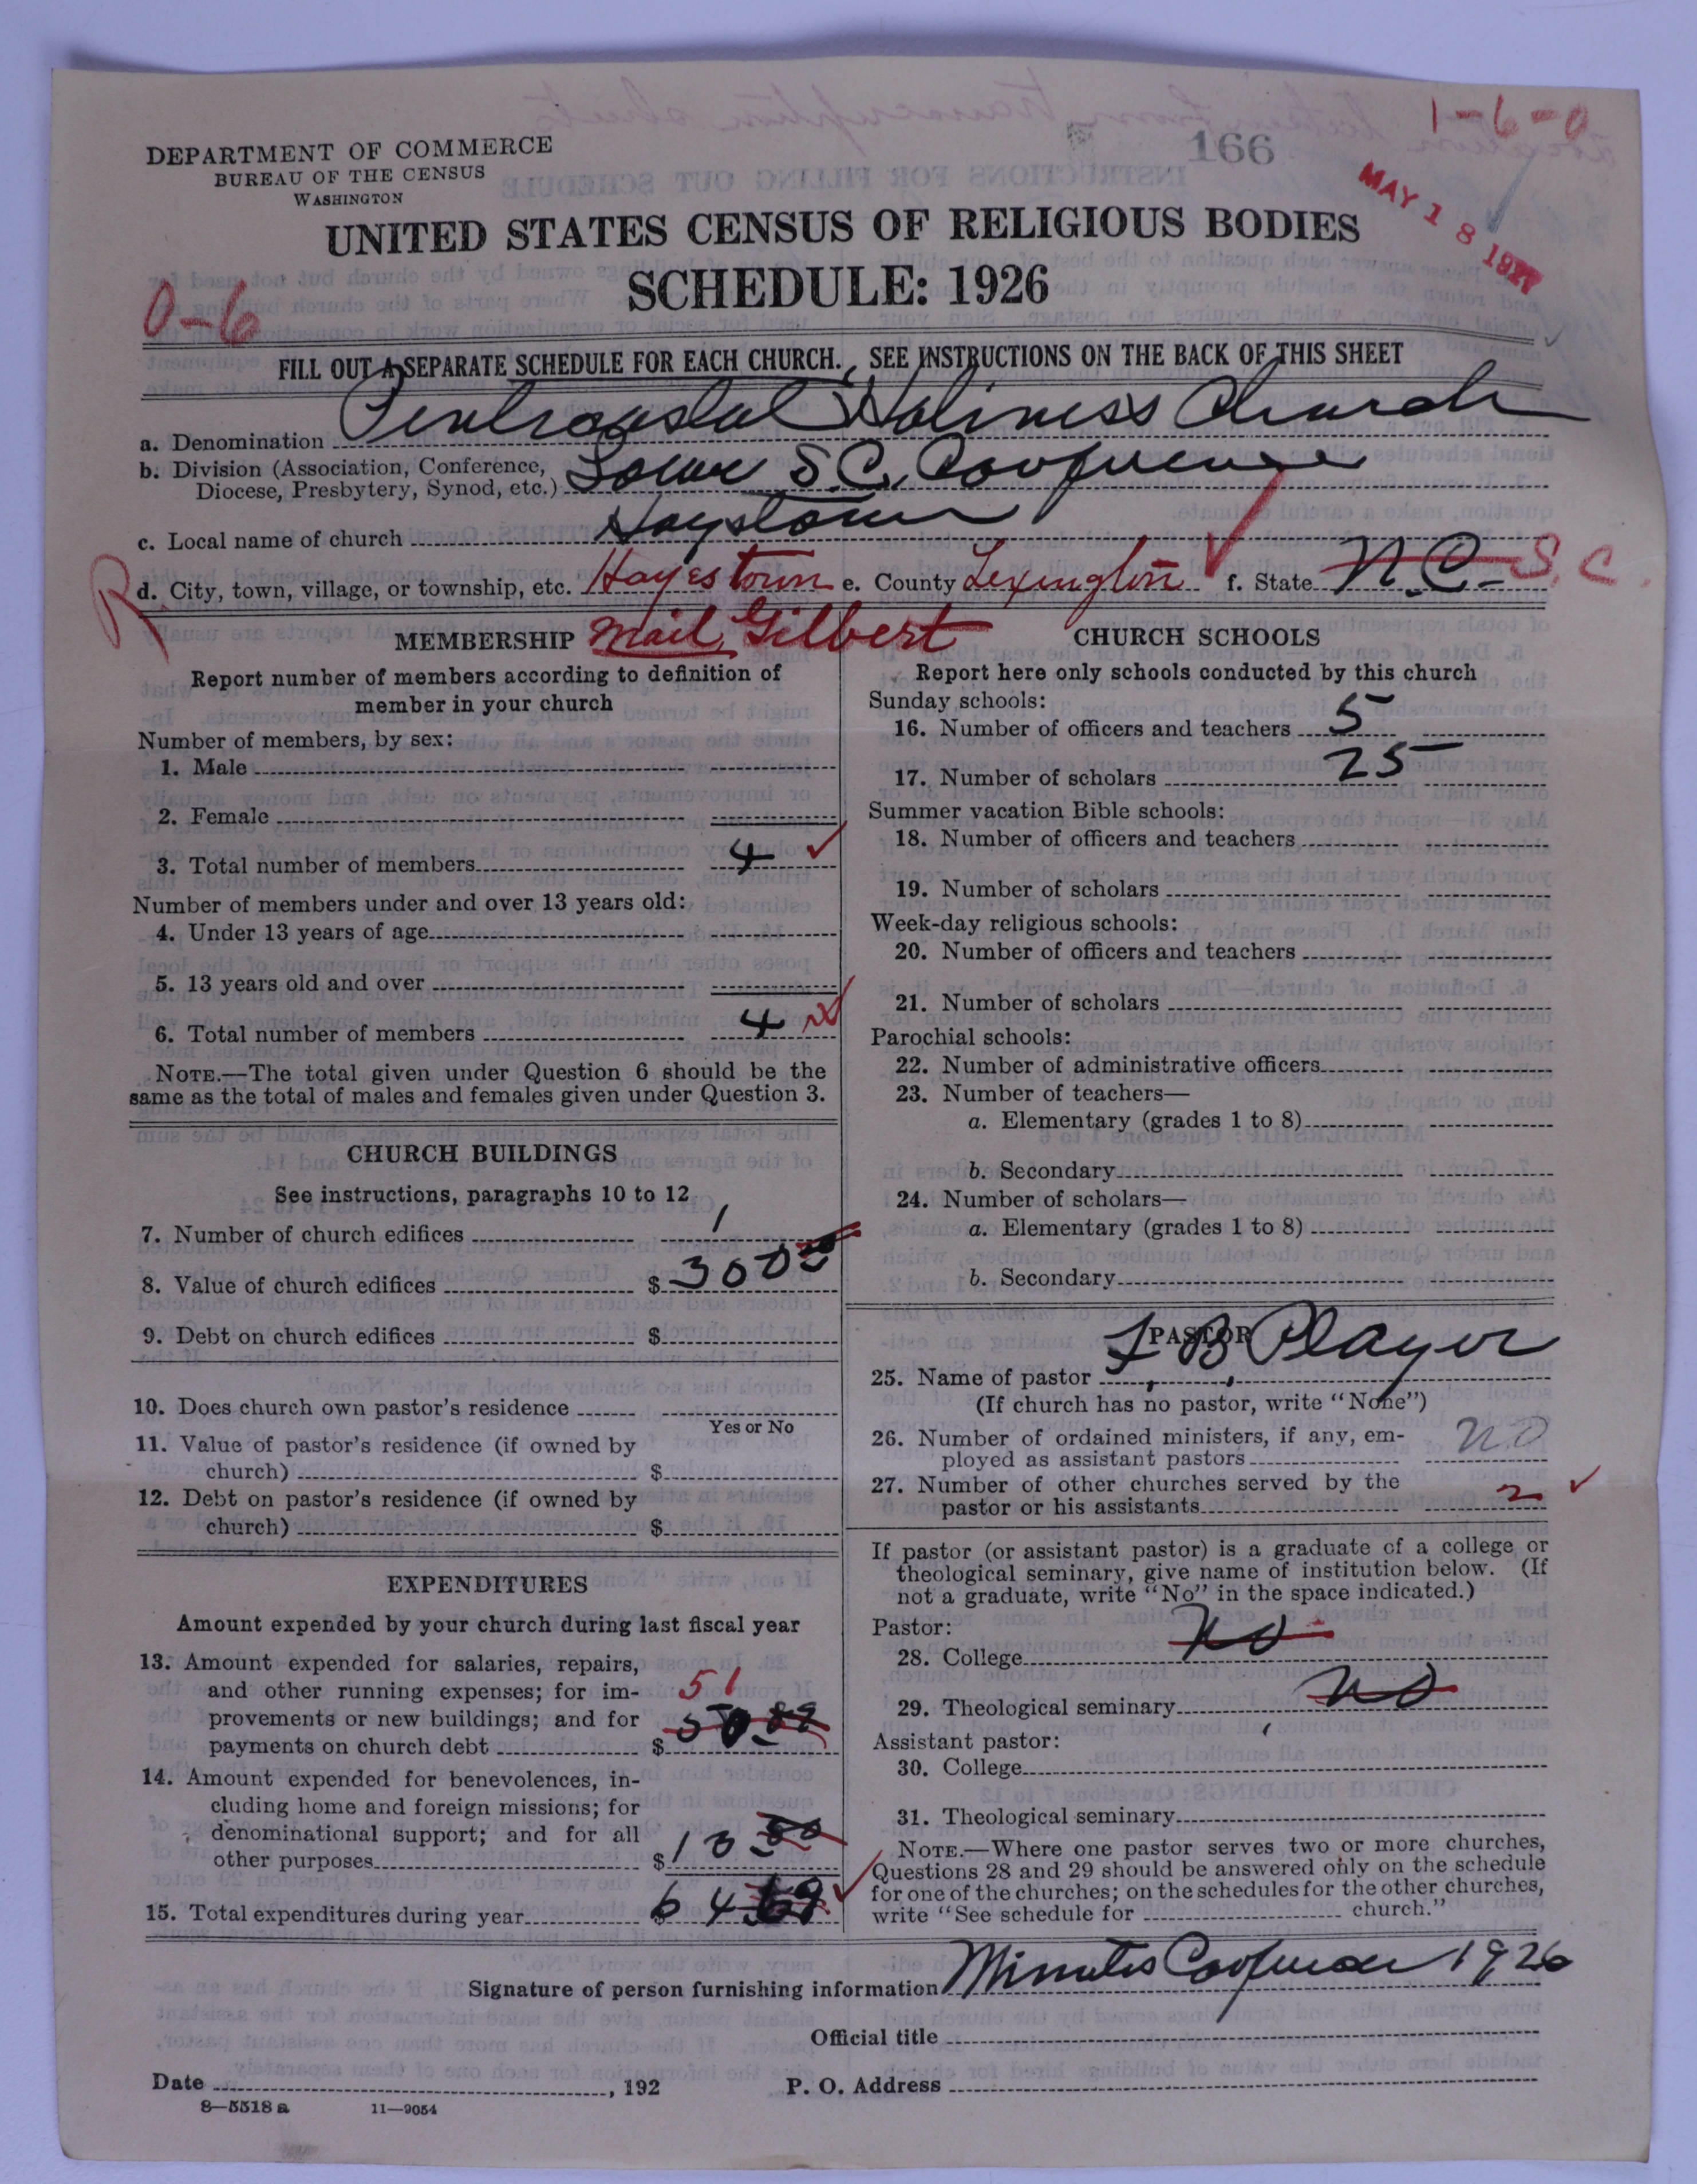 1-6-0
166
DEPARTMENT OF COMMERCE
BUREAU OF THE CENSUS
WASHINGTON
MAY 18 1927
UNITED STATES CENSUS OF RELIGIOUS BODIES
SCHEDULE: 1926
0-6
FILL OUT A SEPARATE SCHEDULE FOR EACH CHURCH. SEE INSTRUCTIONS ON THE BACK OF THIS SHEET
a. Denomination Pentecostal Holiness Church
b. Division (Association, Conference, Diocese, Presbytery, Synod, etc.) Lower S.C. Conference
c. Local name of church Haystown
R d. City, town, village, or township, etc. Hayestown e. County Lexington f. State N.C. S.C.
MEMBERSHIP Mail Gilbert
Report number of members according to definition of
member in your church
Number of members, by sex:
1. Male
2. Female
3. Total number of members 4
Number of members under and over 13 years old:
4. Under 13 years of age
5. 13 years old and over
6. Total number of members 4
NOTE.—The total given under Question 6 should be the
same as the total of males and females given under Question 3.
CHURCH BUILDINGS
See instructions, paragraphs 10 to 12
7. Number of church edifices 1
8. Value of church edifices $ 300 00
9. Debt on church edifices $
10. Does church own pastor's residence
Yes or No
11. Value of pastor's residence (if owned by
church) $
12. Debt on pastor's residence (if owned by
church) $
EXPENDITURES
Amount expended by your church during last fiscal year
13. Amount expended for salaries, repairs,
and other running expenses; for im-
provements or new buildings; and for
payments on church debt $ 50 89
51
14. Amount expended for benevolences, in-
cluding home and foreign missions; for
denominational support; and for all
other purposes $ 13 80
15. Total expenditures during year $ 64 69
CHURCH SCHOOLS
Report here only schools conducted by this church
Sunday schools:
16. Number of officers and teachers 5
17. Number of scholars 25
Summer vacation Bible schools:
18. Number of officers and teachers
19. Number of scholars
Week-day religious schools:
20. Number of officers and teachers
21. Number of scholars
Parochial schools:
22. Number of administrative officers
23. Number of teachers—
a. Elementary (grades 1 to 8)
b. Secondary
24. Number of scholars—
a. Elementary (grades 1 to 8)
b. Secondary
PASTOR
25. Name of pastor L. B. Player
(If church has no pastor, write "None")
26. Number of ordained ministers, if any, em-
ployed as assistant pastors no
27. Number of other churches served by the
pastor or his assistants 2
If pastor (or assistant pastor) is a graduate of a college or
theological seminary, give name of institution below. (If
not a graduate, write "No" in the space indicated.)
Pastor:
28. College no
29. Theological seminary no
Assistant pastor:
30. College
31. Theological seminary
NOTE.—Where one pastor serves two or more churches,
Questions 28 and 29 should be answered only on the schedule
for one of the churches; on the schedules for the other churches,
write "See schedule for church."
Signature of person furnishing information Minutes Conference 1926
Official title
Date , 192 P. O. Address
8-5518 a 11-9054